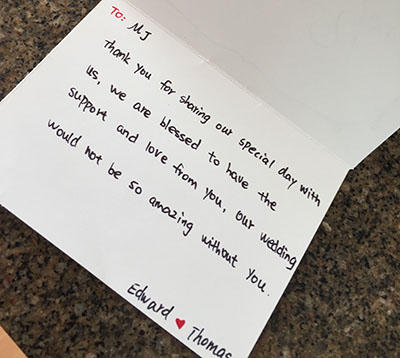 TO: MJ
Thank you for sharing our special day with
us, we are blessed to have the
support and love from you, our wedding
would not be so amazing without you.
Edward ♥ Thomas